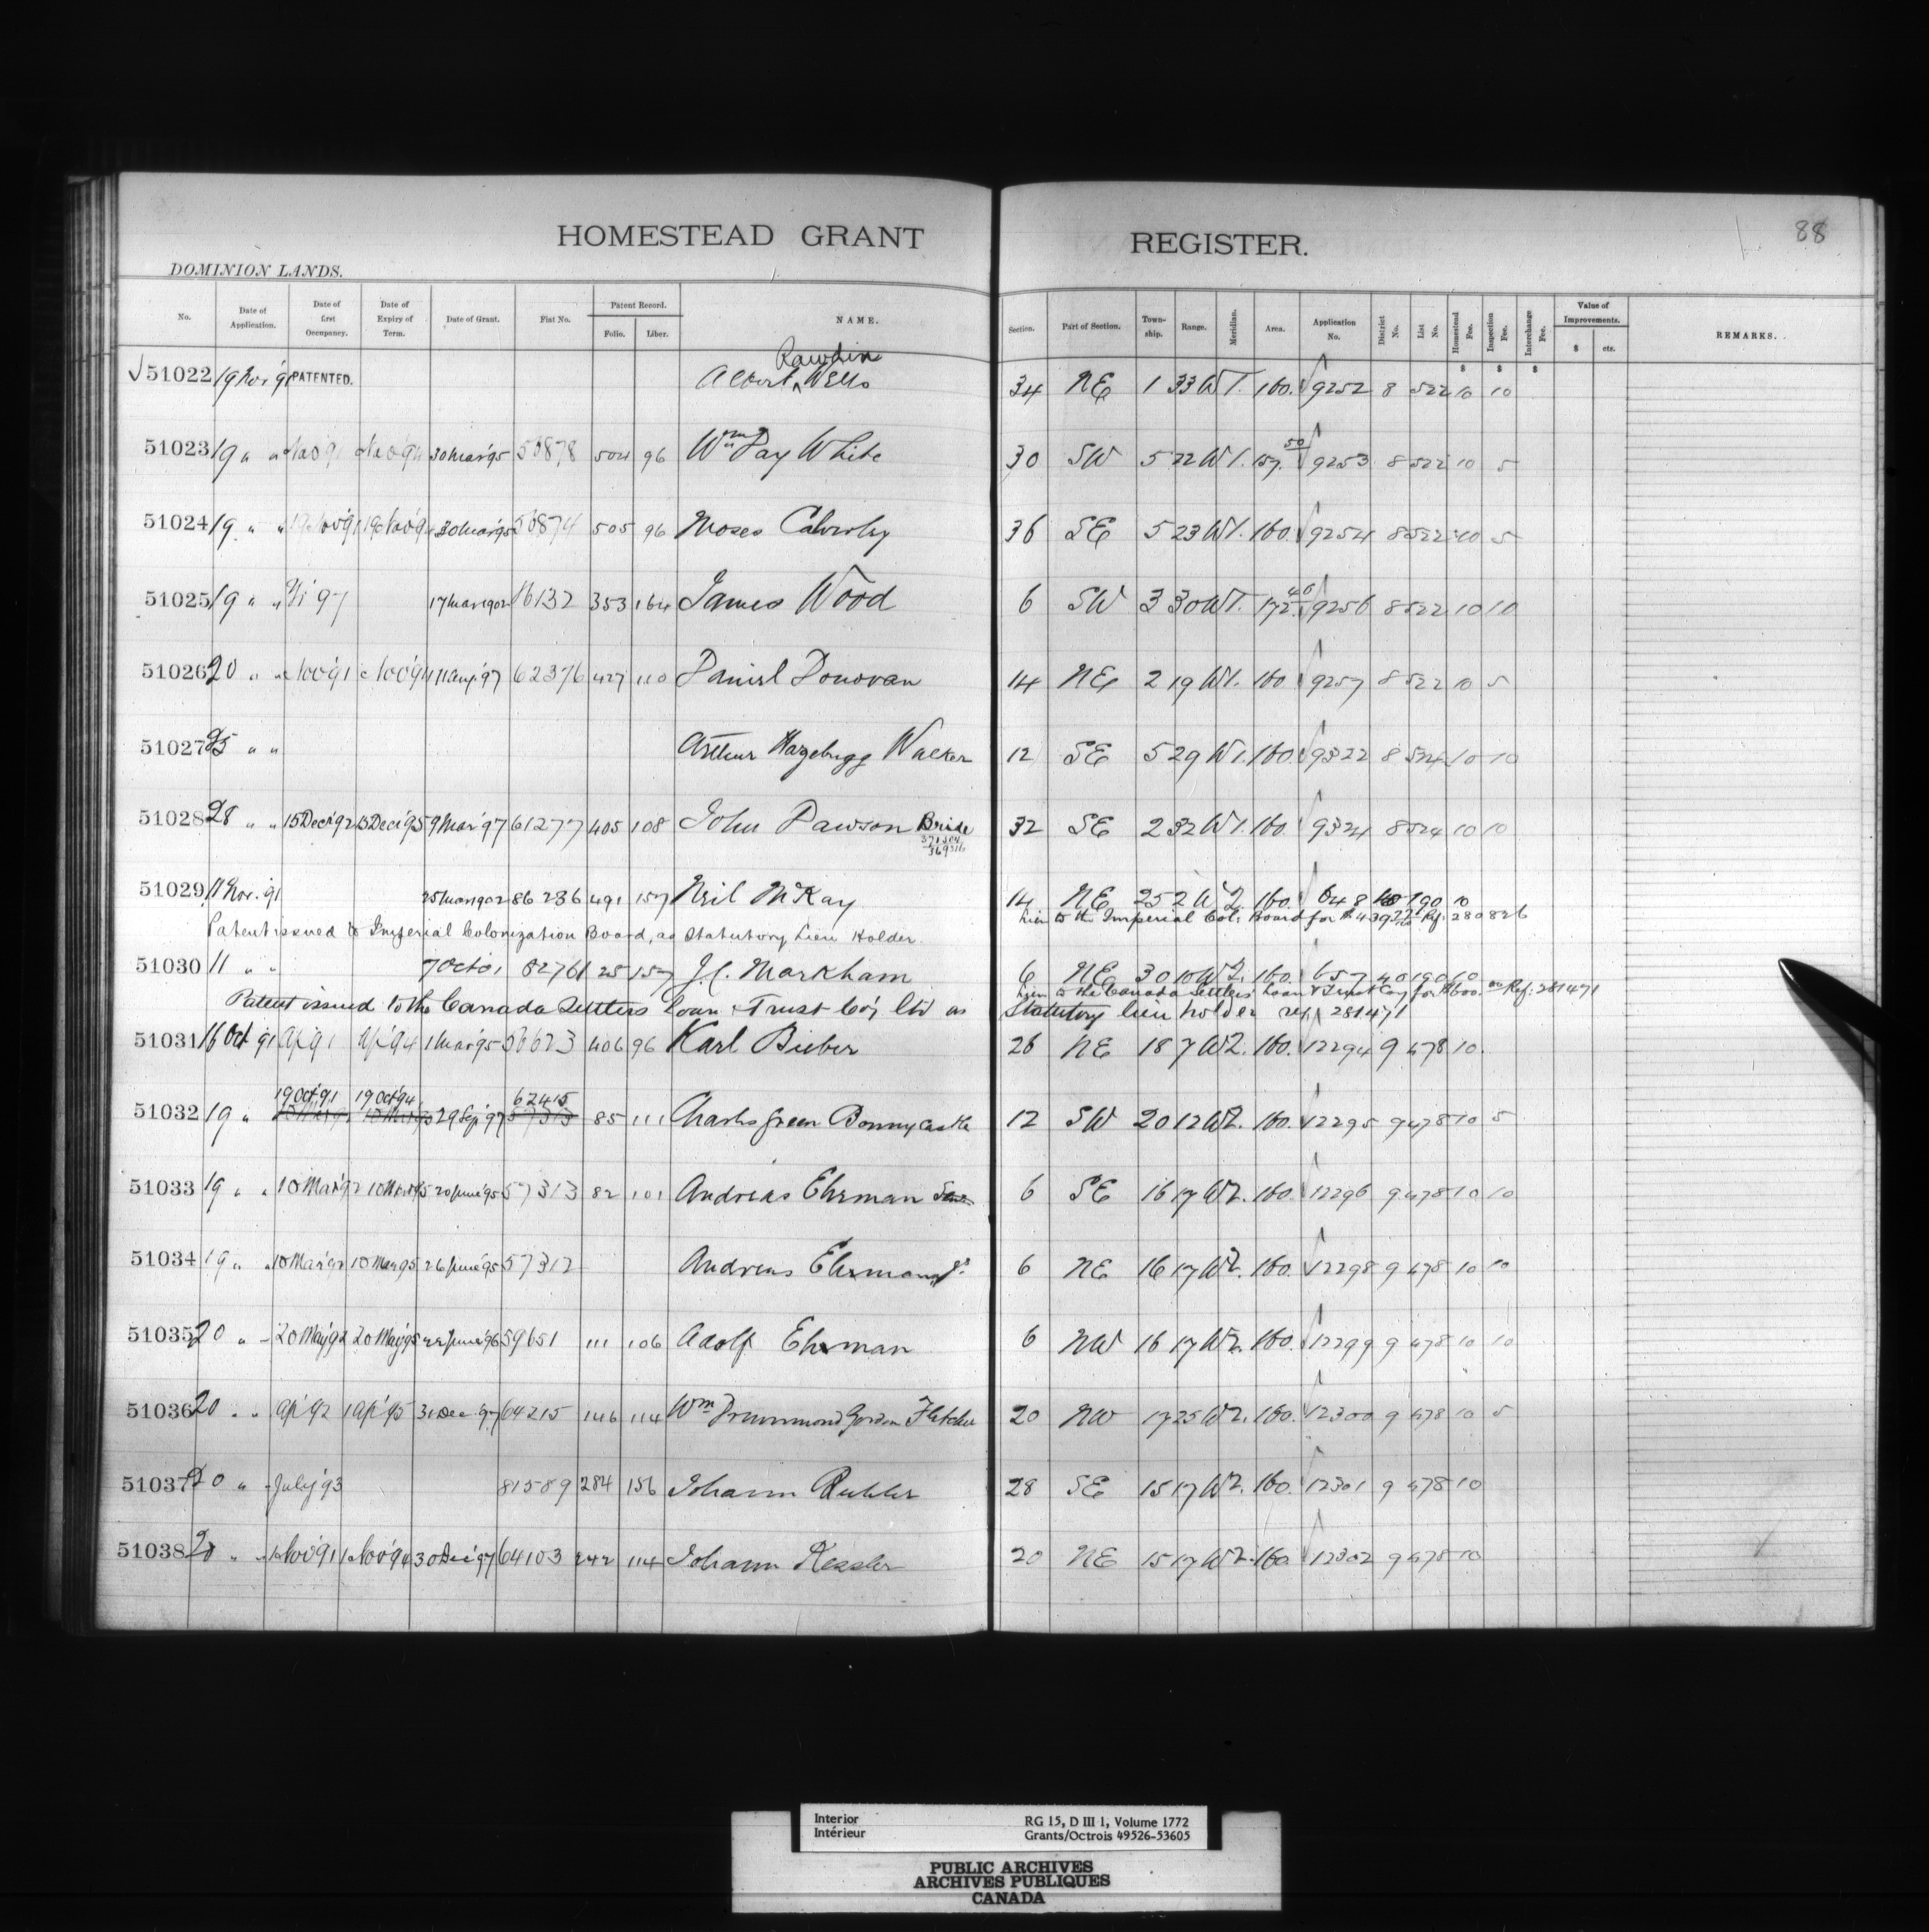 88
HOMESTEAD GRANT REGISTER.
DOMINION LANDS.
No. Date of Application. Date of first Occupancy. Date of Expiry of Term. Date of Grant. Fiat No. Patent Record. Folio. Liber. NAME. Section. Part of Section. Township. Range. Meridian. Area. Application No. District No. List No. Homestead Fee. Inspection Fee. Interchange Fee. Value of Improvements. $ cts. REMARKS.
$ $ $
Rawdin
√51022 19 Nov '91 PATENTED. Albert ^ Wells 34 NE 1 33 W1. 160. 9252 8 522 10 10
51023 19 " " 30 Mar '95 504 96 Wm Day White 30 SW 5 22 W1. 157. 50 9253 8 522 10 5
51024 19 " " 30 Mar '95 505 96 Moses 36 SE 5 23 W1. 160. 9254 8 522 10 5
51025 19 " " 17 Mar 1902 353 164 James Wood 6 SW 3 30 W1. 172. 9256 8 522 10 10
51026 20 " " Nov '91 Nov '94 11 Aug '97 62376 427 110 Daniel Donovan 14 NE 2 19 W1. 160 9257 8 522 10 5
51027 25 " " Arthur Walker 12 SE 5 29 W1. 160. 9322 8 524 10 10
51028 28 " " 15 Dec '92 15 Dec '95 9 Mar '97 61277 405 108 John Dawson Bride 32 SE 2 32 W1. 160. 9324 8 524 10 10
51029 11 Nov. '91 25 Mar 1902 86236 491 157 Neil McKay 14 NE 25 2 W2. 160. 648 190 10
Lien to the Imperial Col: Board for Ref: 280826
Patent issued to Imperial Colonization Board, as Statutory Lien Holder.
51030 11 " " 7 Oct 01 82761 25 157 J.C. Markham 6 NE 30 10 W2. 160. 657 40 190 10
Lien to the Canada Settlers Loan & Trust Coy for $600.00 Ref: 281471
Patent issued to the Canada Settlers Loan & Trust Coy Ltd as Statutory lien holder ref. 281471
51031 16 Oct '91 Ap '91 Ap '94 1 Mar '95 56623 406 96 Karl Bieber 26 NE 18 7 W2. 160. 12294 9 478 10.
19 Oct '91 19 Oct '94 62415
51032 19 " 29 Sep '97 57313 85 111 Charles Green Bonnycastle 12 SW 20 12 W2. 160. 12295 9 478 10 5
51033 19 " " 10 Mar '92 10 Mar '95 20 June '95 57313 82 101 Andreas Ehrman 6 SE 16 17 W2. 160. 12296 9 478 10 10
51034 19 " " 10 Mar '92 10 Mar '95 26 June '95 57312 Andreas Ehrman Jr 6 NE 16 17 W2. 160. 12298 9 478 10 10
51035 20 " " 20 May '92 20 May '95 22 June '96 59651 111 106 Adolf Ehrman 6 NW 16 17 W2. 160. 12299 9 478 10 10
51036 20 " " Ap '92 1 Ap '95 31 Dec '97 64215 146 114 Wm Drummond Gordon Fletcher 20 NW 17 25 W2. 160. 12300 9 478 10 5
51037 20 " July '93 81589 284 156 Johann 28 SE 15 17 W2. 160. 12301 9 478 10
51038 20 " " 1 Nov '91 1 Nov '94 30 Dec '97 64103 242 114 Johann Kessler 20 NE 15 17 W2. 160 12302 9 478 10
Interior RG 15, D III 1, Volume 1772
Intérieur Grants/Octrois 49526-53605
PUBLIC ARCHIVES
ARCHIVES PUBLIQUES
CANADA